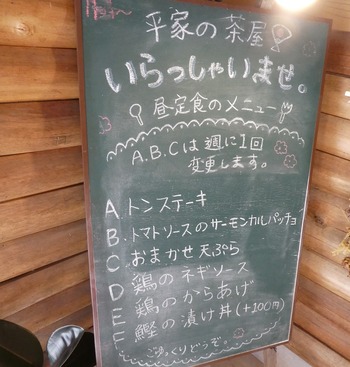 平家の茶屋
いらっしゃいませ。
昼定食のメニュー
A.B.Cは週に1回
変更します。
A.トンステーキ
B.トマトソースのサーモンカルパッチョ
C おまかせ天ぷら
D 鶏のネギソース
E 鶏のからあげ
F 鰹の漬け丼(+100円)
ごゆっくりどうぞ。